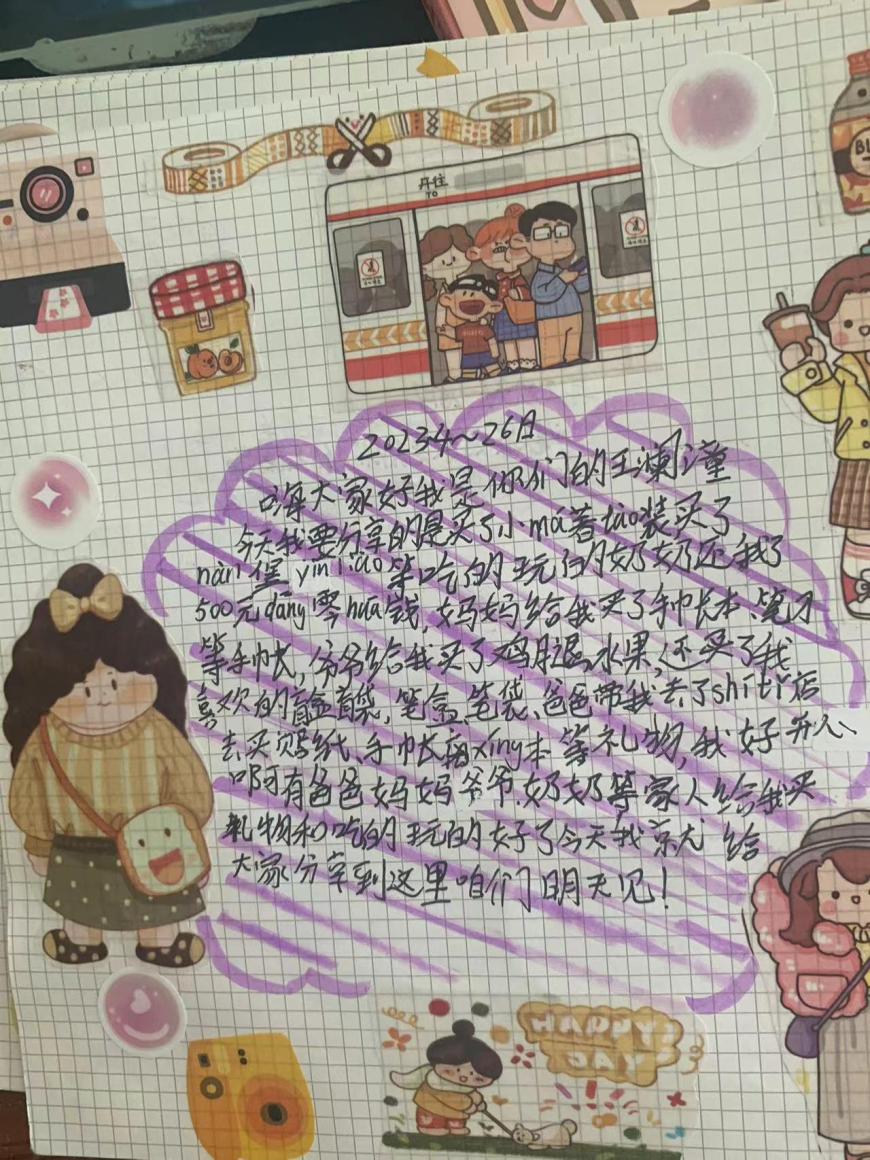 开往
TO
20234~26日
嗨大家好我是你们的王澜潼
今天我要分享的是买了小má著tào装,买了
nàn堡yǐnliào等吃的玩的奶奶还我了
500元dāng零huā钱,妈妈给我买了手帐本、笔刀
等手帐,爷爷给我买了鸡腿水果,还买了我
喜欢的盲盒首袋,笔盒笔袋、爸爸带我去了shítǐ店
去买贴纸、手帐xíng本等礼物,我好开心、
啊有爸爸妈妈爷爷.奶奶等家人给我买
礼物和吃的玩的好了今天我就给
大家分享到这里咱们明天见!
HAPPY!
DAY